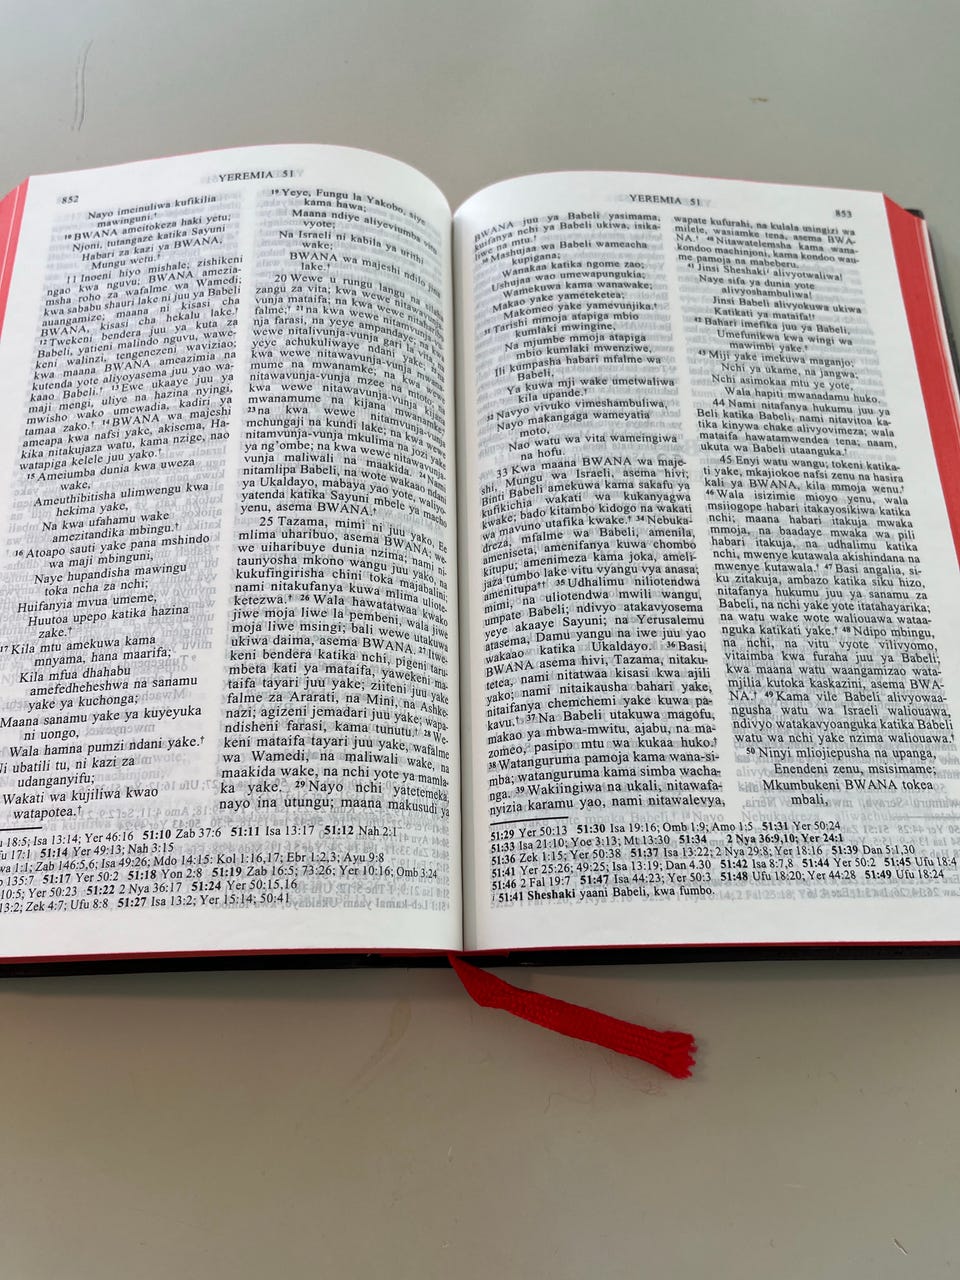 852
YEREMIA 51
Nayo imeinuliwa kufikilia
mawinguni.†
10 BWANA ameitokeza haki yetu;
Njoni, tutangaze katika Sayuni
Habari za kazi ya BWANA,
Mungu wetu.†
11 Inoeni hiyo mishale; zishikeni
ngao kwa nguvu; BWANA amezia-
msha roho za wafalme wa Wamedi;
kwa sababu shauri lake ni juu ya Babeli
auangamize, maana ni kisasi cha
BWANA, kisasi cha hekalu lake.†
12 Twekeni bendera juu ya kuta za
Babeli, yatieni malindo nguvu, wawe-
keni walinzi, tengenezeni waviziao;
kwa maana BWANA ameazimia na
kutenda yote aliyoyasema juu yao wa-
kaao Babeli. 13 Ewe ukaaye juu ya
maji mengi, uliye na hazina nyingi,
mwisho wako umewadia, kadiri ya
tamaa zako.† 14 BWANA wa majeshi
ameapa kwa nafsi yake, akisema, Ha-
kika nitakujaza watu, kama nzige, nao
watapiga kelele juu yako.†
15 Ameiumba dunia kwa uweza
wake,
Ameuthibitisha ulimwengu kwa
hekima yake,
Na kwa ufahamu wake
amezitandika mbingu.†
16 Atoapo sauti yake pana mshindo
wa maji mbinguni,
Naye hupandisha mawingu
toka ncha za nchi;
Huifanyia mvua umeme,
Huutoa upepo katika hazina
zake.†
17 Kila mtu amekuwa kama
mnyama, hana maarifa;
Kila mfua dhahabu
amefedheheshwa na sanamu
yake ya kuchonga;
Maana sanamu yake ya kuyeyuka
ni uongo,
Wala hamna pumzi ndani yake.†
ubatili tu, ni kazi za
udanganyifu;
Wakati wa kujiliwa kwao
watapotea.†
19 Yeye, Fungu la Yakobo, siye
kama hawa;
Maana ndiye aliyeviumba vitu
vyote;
Na Israeli ni kabila ya urithi
wake;
BWANA wa majeshi ndilo jina
lake.†
20 Wewe u rungu langu na silaha
zangu za vita; kwa wewe nitawavunja-
vunja mataifa; na kwa wewe nitaharibu
falme;† 21 na kwa wewe nitamvunja-vu-
nja farasi, na yeye ampandaye; na kwa
wewe nitalivunja-vunja gari la vita, na
yeye achukuliwaye ndani yake; 22 na
kwa wewe nitawavunja-vunja mwana-
mume na mwanamke; na kwa wewe
nitawavunja-vunja mzee na mtoto; na
kwa wewe nitawavunja-vunja kijana
mwanamume na kijana mwanamke;
23 na kwa wewe nitamvunja-vunja
mchungaji na kundi lake; na kwa wewe
nitamvunja-vunja mkulima na jozi yake
ya ng'ombe; na kwa wewe nitawavunja-
vunja maliwali na maakida. 24 Nami
nitamlipa Babeli, na wote wakaao ndani
ya Ukaldayo, mabaya yao yote, waliyo-
yatenda katika Sayuni mbele ya macho
yenu, asema BWANA.†
25 Tazama, mimi ni juu yako, Ee
mlima uharibuo, asema BWANA; we-
we uiharibuye dunia nzima; nami ni-
taunyosha mkono wangu juu yako, na
kukufingirisha chini toka majabalini;
nami nitakufanya kuwa mlima uliote-
ketezwa.† 26 Wala hawatatwaa kwako
jiwe moja liwe la pembeni, wala jiwe
moja liwe msingi; bali wewe utakuwa
ukiwa daima, asema BWANA. 27 Itwe-
keni bendera katika nchi, pigeni taru-
mbeta kati ya mataifa, yawekeni ma-
taifa tayari juu yake; ziiteni juu yake
falme za Ararati, na Mini, na Ashke-
nazi; agizeni jemadari juu yake; wapa-
ndisheni farasi, kama tunutu.† 28 We-
keni mataifa tayari juu yake, wafalme
wa Wamedi, na maliwali wake, na
maakida wake, na nchi yote ya mamla-
ka yake. 29 Nayo nchi yatetemeka,
nayo ina utungu; maana makusudi ya
18:5; Isa 13:14; Yer 46:16 51:10 Zab 37:6 51:11 Isa 13:17 51:12 Nah 2:1
17:1 51:14 Yer 49:13; Nah 3:15
1:1; Zab 146:5,6; Isa 49:26; Mdo 14:15: Kol 1:16,17; Ebr 1:2,3; Ayu 9:8
135:7 51:17 Yer 50:2 51:18 Yon 2:8 51:19 Zab 16:5; 73:26; Yer 10:16; Omb 3:24
10:5; Yer 50:23 51:22 2 Nya 36:17 51:24 Yer 50:15,16
13:2; Zek 4:7; Ufu 8:8 51:27 Isa 13:2; Yer 15:14; 50:41
YEREMIA 51
853
BWANA juu ya Babeli yasimama,
kuifanya nchi ya Babeli ukiwa, isika-
liwe na mtu.†
30 Mashujaa wa Babeli wameacha
kupigana;
Wanakaa katika ngome zao;
Ushujaa wao umewapungukia;
Wamekuwa kama wanawake;
Makao yake yameteketea;
Makomeo yake yamevunjika.†
31 Tarishi mmoja atapiga mbio
kumlaki mwingine,
Na mjumbe mmoja atapiga
mbio kumlaki mwenziwe,
Ili kumpasha habari mfalme wa
Babeli,
Ya kuwa mji wake umetwaliwa
kila upande.†
32 Navyo vivuko vimeshambuliwa,
Nayo makangaga wameyatia
moto,
Nao watu wa vita wameingiwa
na hofu.
33 Kwa maana BWANA wa maje-
shi, Mungu wa Israeli, asema hivi;
Binti Babeli amekuwa kama sakafu ya
kufikichia wakati wa kukanyagwa
kwake; bado kitambo kidogo na wakati
wa mavuno utafika kwake.† 34 Nebuka-
dreza, mfalme wa Babeli, amenila,
ameniseta, amenifanya kuwa chombo
kitupu; amenimeza kama joka, ameli-
jaza tumbo lake vitu vyangu vya anasa;
amenitupa†† 35 Udhalimu niliotendwa
mimi, na uliotendwa mwili wangu,
umpate Babeli; ndivyo atakavyosema
yeye akaaye Sayuni; na Yerusalemu
atasema, Damu yangu na iwe juu yao
wakaao katika Ukaldayo. 36 Basi,
BWANA asema hivi, Tazama, nitaku-
tetea, nami nitatwaa kisasi kwa ajili
yako; nami nitaikausha bahari yake,
nitaifanya chemchemi yake kuwa pa-
kavu.† 37 Na Babeli utakuwa magofu,
makao ya mbwa-mwitu, ajabu, na ma-
zomeo, pasipo mtu wa kukaa huko.†
38 Watanguruma pamoja kama wana-si-
mba; watanguruma kama simba wacha-
nga. 39 Wakiingiwa na ukali, nitawafa-
nyizia karamu yao, nami nitawalevya,
wapate kufurahi, na kulala usingizi wa
milele, wasiamke tena, asema BWA-
NA.† 40 Nitawatelemsha kama wana-
kondoo machinjoni, kama kondoo wau-
me pamoja na mabeberu.
41 Jinsi Sheshaki alivyotwaliwa!
Naye sifa ya dunia yote
alivyoshambuliwa!
Jinsi Babeli alivyokuwa ukiwa
Katikati ya mataifa!†
42 Bahari imefika juu ya Babeli,
Umefunikwa kwa wingi wa
mawimbi yake.†
43 Miji yake imekuwa maganjo;
Nchi ya ukame, na jangwa;
Nchi asimokaa mtu ye yote,
Wala hapiti mwanadamu huko.
44 Nami nitafanya hukumu juu ya
Beli katika Babeli, nami nitavitoa ka-
tika kinywa chake alivyovimeza; wala
mataifa hawatamwendea tena; naam,
ukuta wa Babeli utaanguka.†
45 Enyi watu wangu, tokeni katika-
ti yake, mkajiokoe nafsi zenu na hasira
kali ya BWANA, kila mmoja wenu.†
46 Wala isizimie mioyo yenu, wala
msiiogope habari itakayosikiwa katika
nchi; maana habari itakuja mwaka
mmoja, na baadaye mwaka wa pili
habari itakuja, na udhalimu katika
nchi, mwenye kutawala akishindana na
mwenye kutawala.† 47 Basi angalia, si-
ku zitakuja, ambazo katika siku hizo,
nitafanya hukumu juu ya sanamu za
Babeli, na nchi yake yote itatahayarika;
na watu wake wote waliouawa wataa-
nguka katikati yake.† 48 Ndipo mbingu,
na nchi, na vitu vyote vilivyomo,
vitaimba kwa furaha juu ya Babeli;
kwa maana watu waangamizao wata-
mjilia kutoka kaskazini, asema BWA-
NA.† 49 Kama vile Babeli alivyowaa-
ngusha watu wa Israeli waliouawa,
ndivyo watakavyoanguka katika Babeli
watu wa nchi yake nzima waliouawa.†
50 Ninyi mliojiepusha na upanga,
Enendeni zenu, msisimame;
Mkumbukeni BWANA tokea
mbali,
51:29 Yer 50:13 51:30 Isa 19:16; Omb 1:9; Amo 1:5 51:31 Yer 50:24
51:33 Isa 21:10; Yoe 3:13; Mt 13:30 51:34 2 Nya 36:9,10; Yer 24:1
51:36 Zek 1:15; Yer 50:38 51:37 Isa 13:22; 2 Nya 29:8; Yer 18:16 51:39 Dan 5:1,30
51:41 Yer 25:26; 49:25; Isa 13:19; Dan 4.30 51:42 Isa 8:7,8 51:44 Yer 50:2 51:45 Ufu 18:4
51:46 2 Fal 19:7 51:47 Isa 44:23; Yer 50:3 51:48 Ufu 18:20; Yer 44:28 51:49 Ufu 18:24
51:41 Sheshaki yaani Babeli, kwa fumbo.